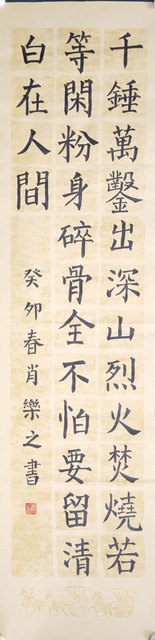 千錘萬鑿出深山烈火焚燒若
等閑粉身碎骨全不怕要留清
白在人間
癸卯春肖樂之書